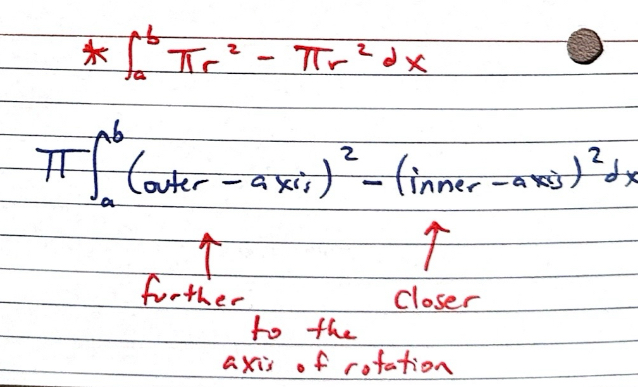 * ∫ₐᵇ πr² - πr² dx
π ∫ₐᵇ (outer - axis)² - (inner - axis)² dx
further closer
to the
axis of rotation